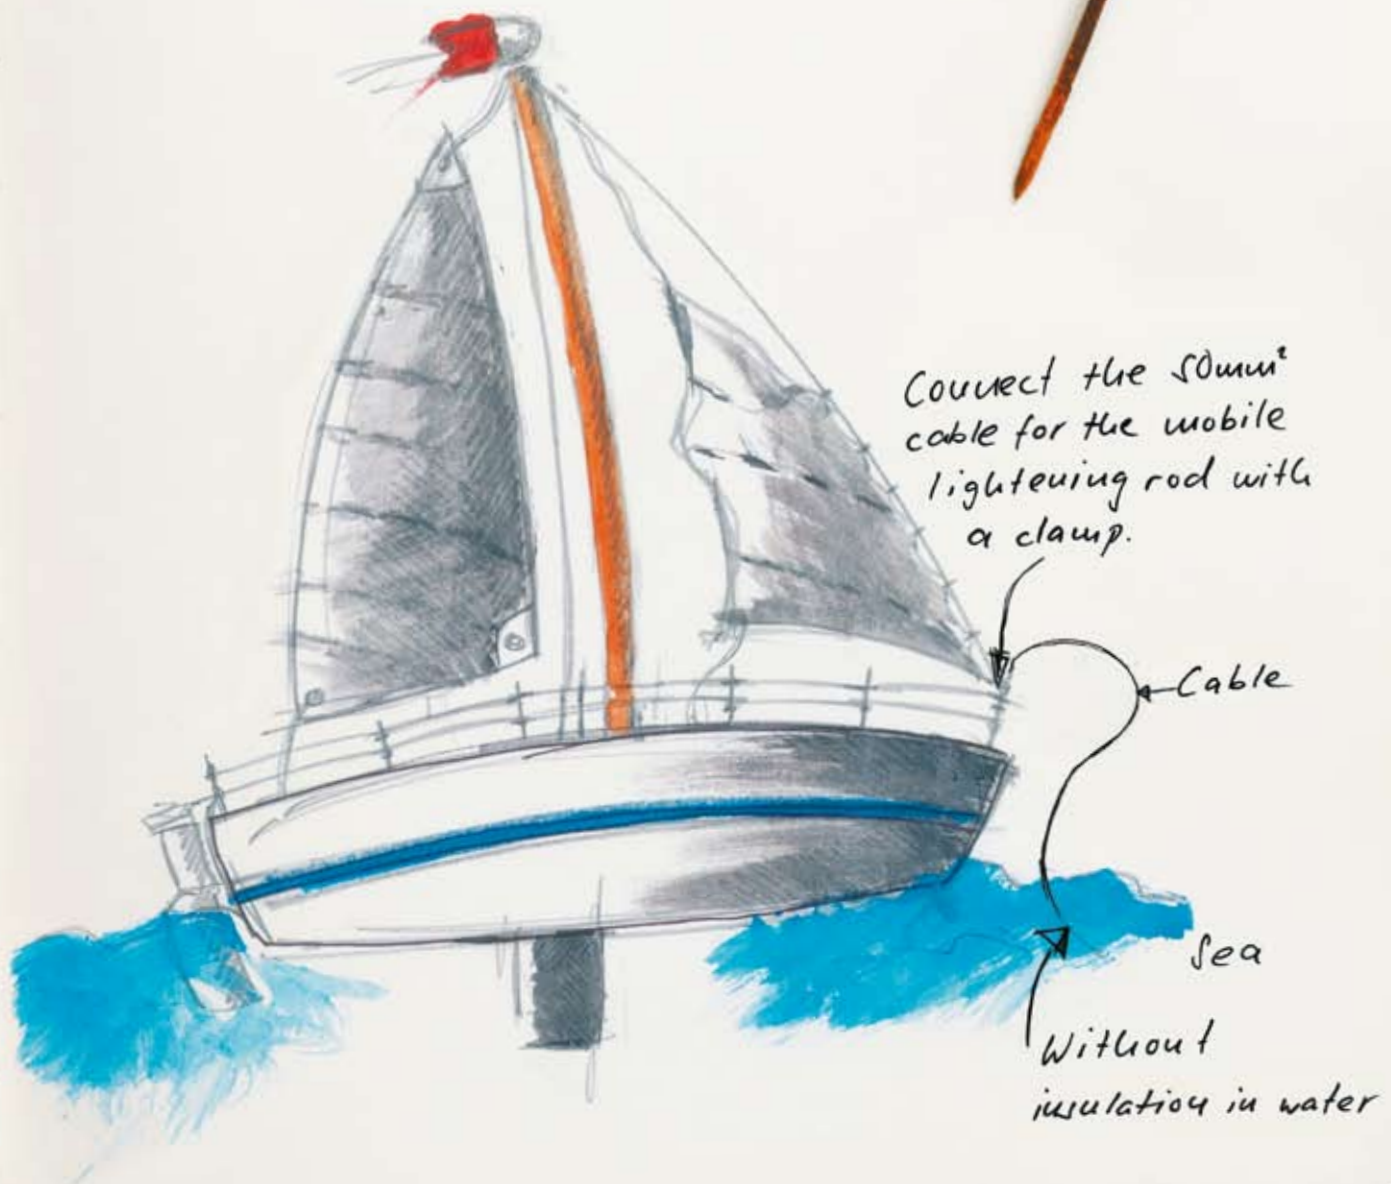 Connect the 50mm²
cable for the mobile
lightening rod with
a clamp.
Cable
Sea
Without
insulation in water